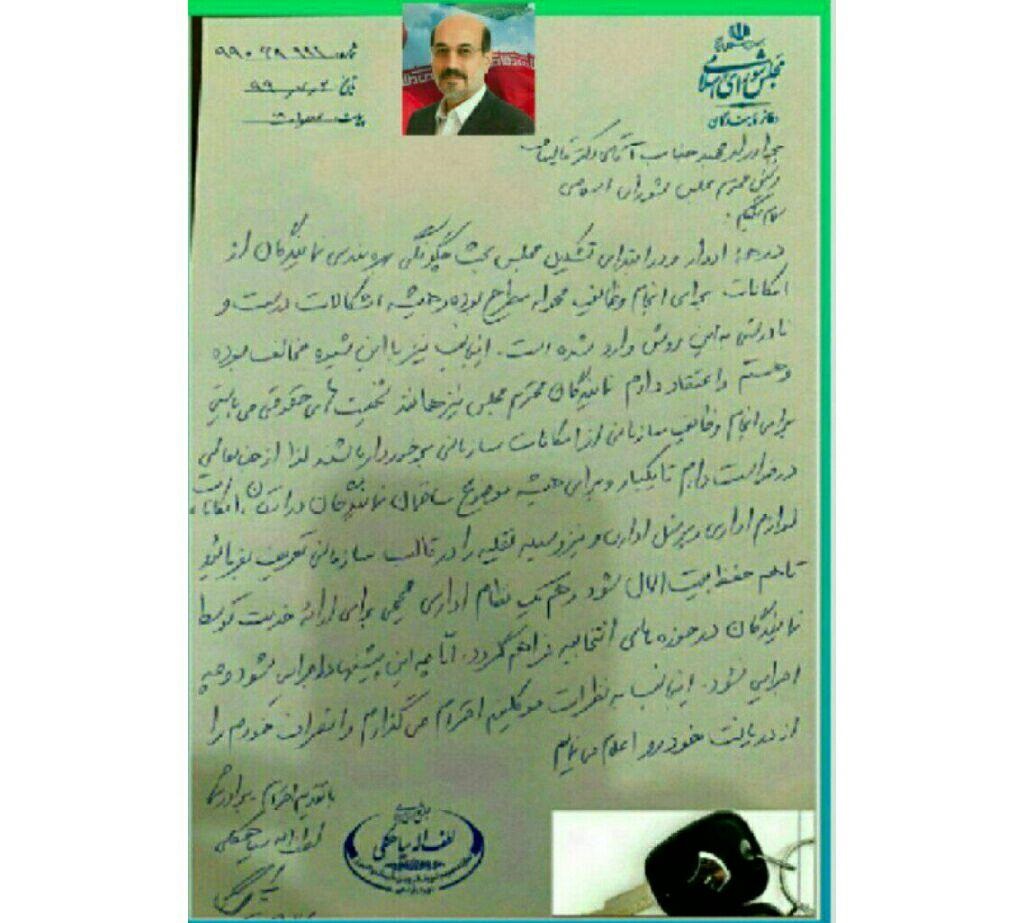 مجلس شورای اسلامی
دفاتر نمایندگان
شماره
تاریخ ۹۹٫۷٫۲
پیوست
برادر ارجمند جناب آقای دکتر قالیباف
رئیس محترم مجلس شورای اسلامی
سلام علیکم؛
در همه ادوار و در ابتدای تشکیل مجلس بحث چگونگی بهره‌مندی نمایندگان از
امکانات برای انجام وظایف محوله مطرح بوده و همیشه اشکالات درست و
نادرستی به این روش وارد شده است. اینجانب نیز با این شیوه مخالف بوده
و هستم و اعتقاد دارم نمایندگان محترم مجلس نیز همانند شخصیت‌های حقوقی می بایستی
برای انجام وظایف سازمانی از امکانات سازمانی برخوردار باشند لذا از جنابعالی
درخواست دارم تا یکبار و برای همیشه موضوع ساختمان نمایندگان در استان، امکانات
لوازم اداری و پرسنل اداری و نیز وسیله نقلیه را در قالب سازمانی تعریف بفرمائید
تا هم حفظ بیت المال شود و هم یک نظام اداری صحیحی برای ارائه خدمت توسط
نمایندگان در حوزه های انتخابیه فراهم گردد. اما چه این پیشنهاد اجرایی شود و چه
اجرایی نشود. اینجانب به نظرات موکلین احترام می گذارم و انصراف خودم را
از دریافت خودرو اعلام می نمایم
با تقدیم احترام برادر شما
لطف اله سیاهکلی
لطف اله سیاهکلی